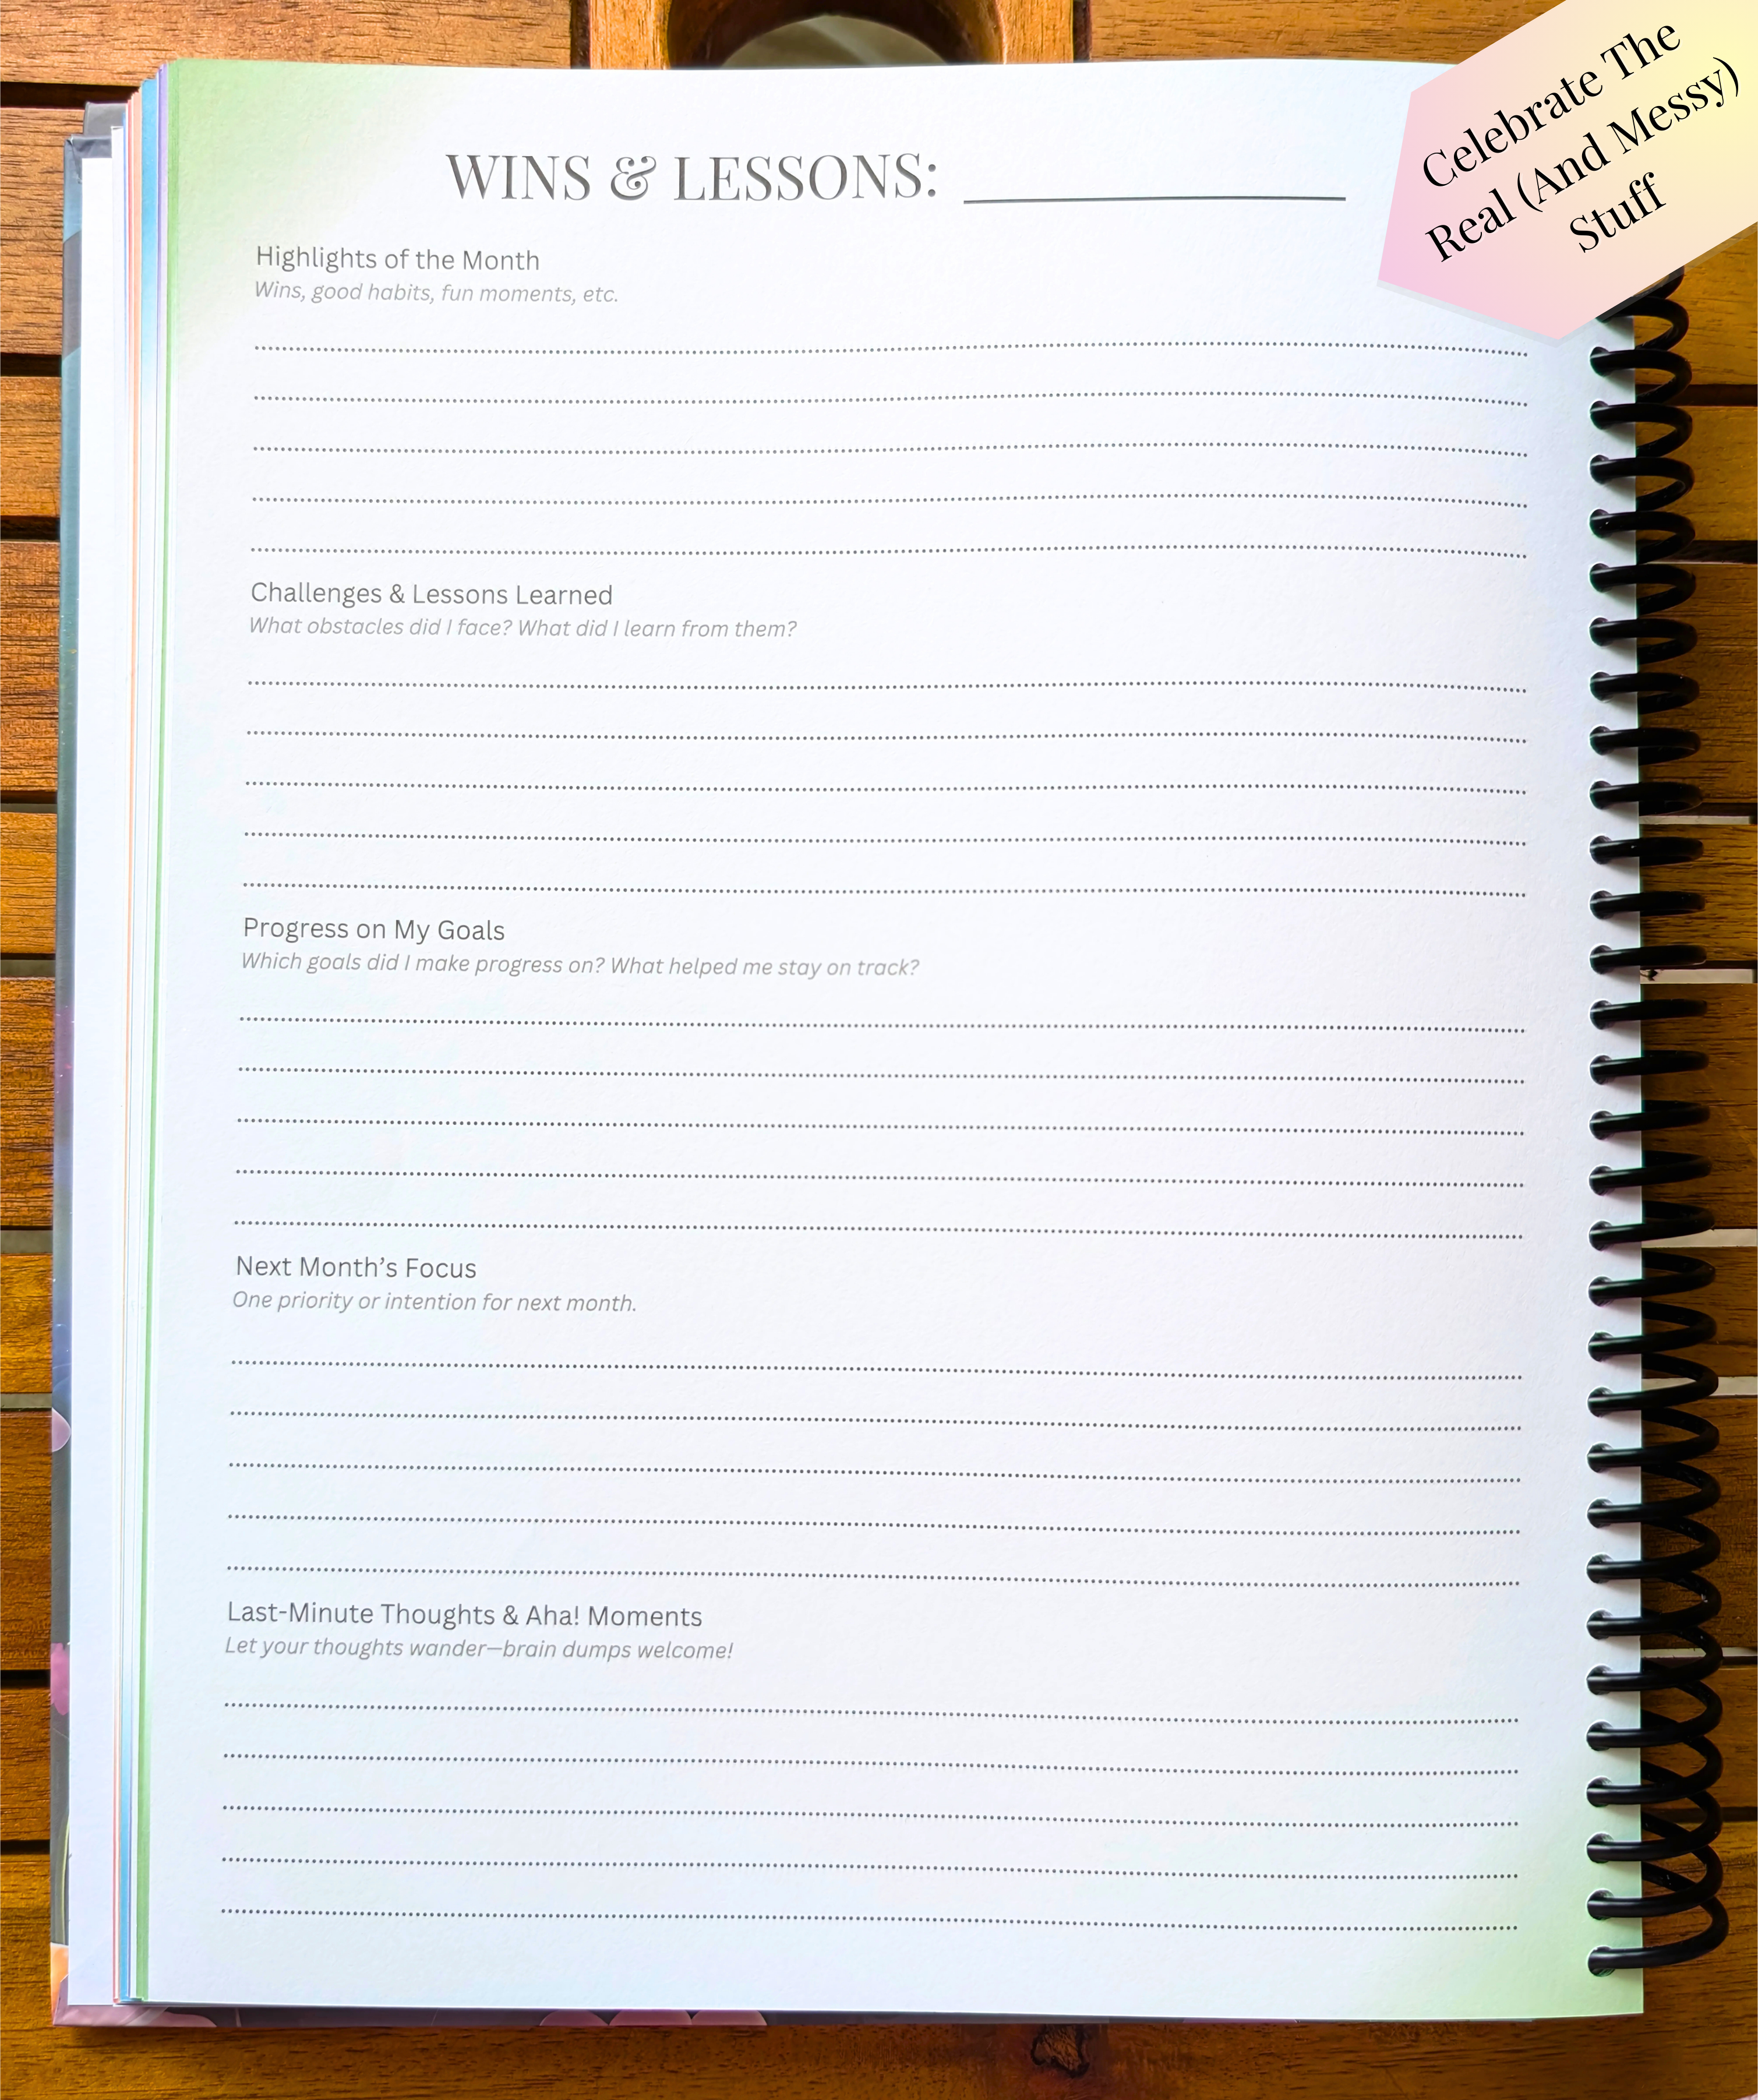 Celebrate The
Real (And Messy)
Stuff
WINS & LESSONS:
Highlights of the Month
Wins, good habits, fun moments, etc.
Challenges & Lessons Learned
What obstacles did I face? What did I learn from them?
Progress on My Goals
Which goals did I make progress on? What helped me stay on track?
Next Month’s Focus
One priority or intention for next month.
Last-Minute Thoughts & Aha! Moments
Let your thoughts wander—brain dumps welcome!